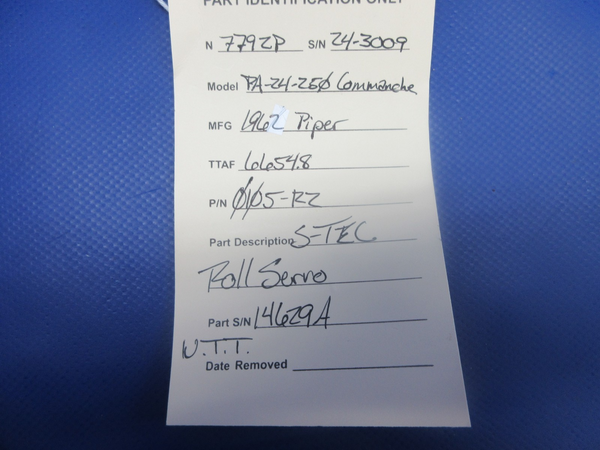 PART IDENTIFICATION ONLY
N 7792P S/N 24-3009
Model PA-24-250 Commanche
MFG 1962 Piper
TTAF 6654.8
P/N 0105-R2
Part Description S-TEC
Roll Servo
Part S/N 14629A
W.T.T.
Date Removed